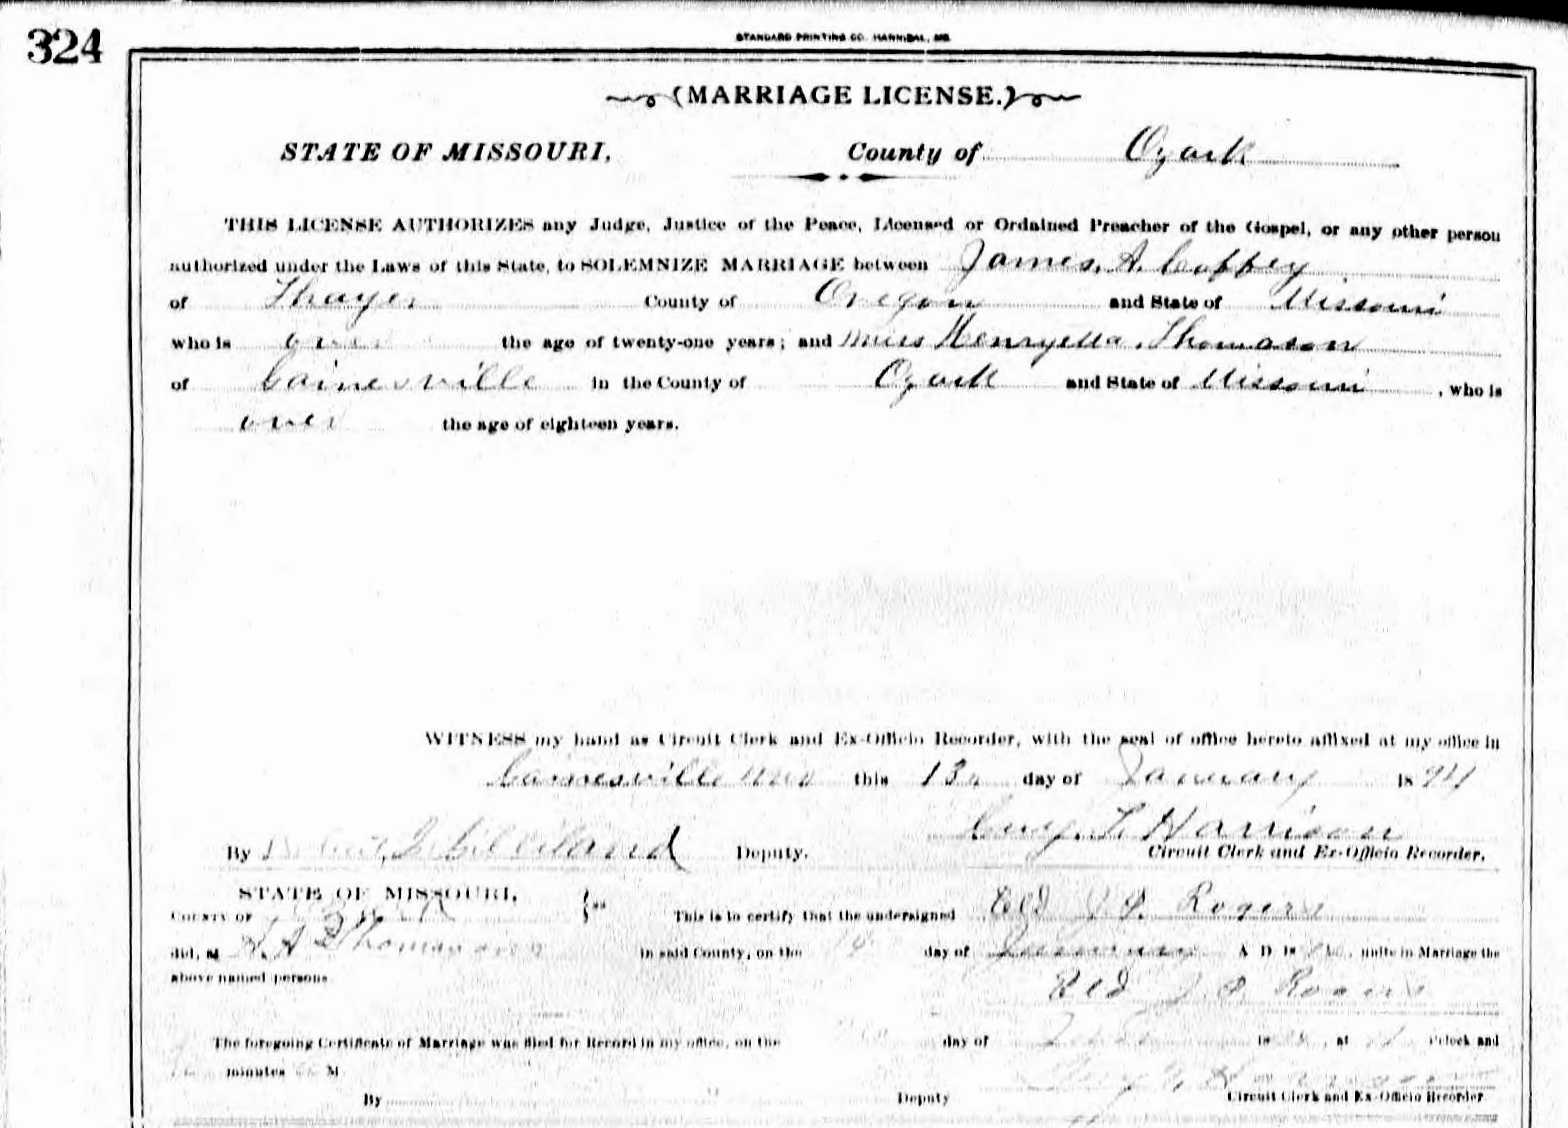 324
STANDARD PRINTING CO. HANNIBAL, MO.
(MARRIAGE LICENSE.)
STATE OF MISSOURI, County of Ozark
THIS LICENSE AUTHORIZES any Judge, Justice of the Peace, Licensed or Ordained Preacher of the Gospel, or any other person
authorized under the Laws of this State, to SOLEMNIZE MARRIAGE between James. A. Coffey
of Thayer County of Oregon and State of Missouri
who is over the age of twenty-one years; and Miss Henryetta. Thomason
of Gainesville in the County of Ozark and State of Missouri, who is
over the age of eighteen years.
WITNESS my hand as Circuit Clerk and Ex-Officio Recorder, with the seal of office hereto affixed at my office in
Gainesville this 13 day of January 1894
By Deputy. T. Harrison
Circuit Clerk and Ex-Officio Recorder.
STATE OF MISSOURI, } ss
COUNTY OF This is to certify that the undersigned Eld J. Rogers
did, at Thomason in said County, on the day of January A. D. 18 , unite in Marriage the
above named persons
Eld J. Rogers
The foregoing Certificate of Marriage was filed for Record in my office, on the day of 18 , at o'clock and
minutes M
By Deputy Circuit Clerk and Ex-Officio Recorder